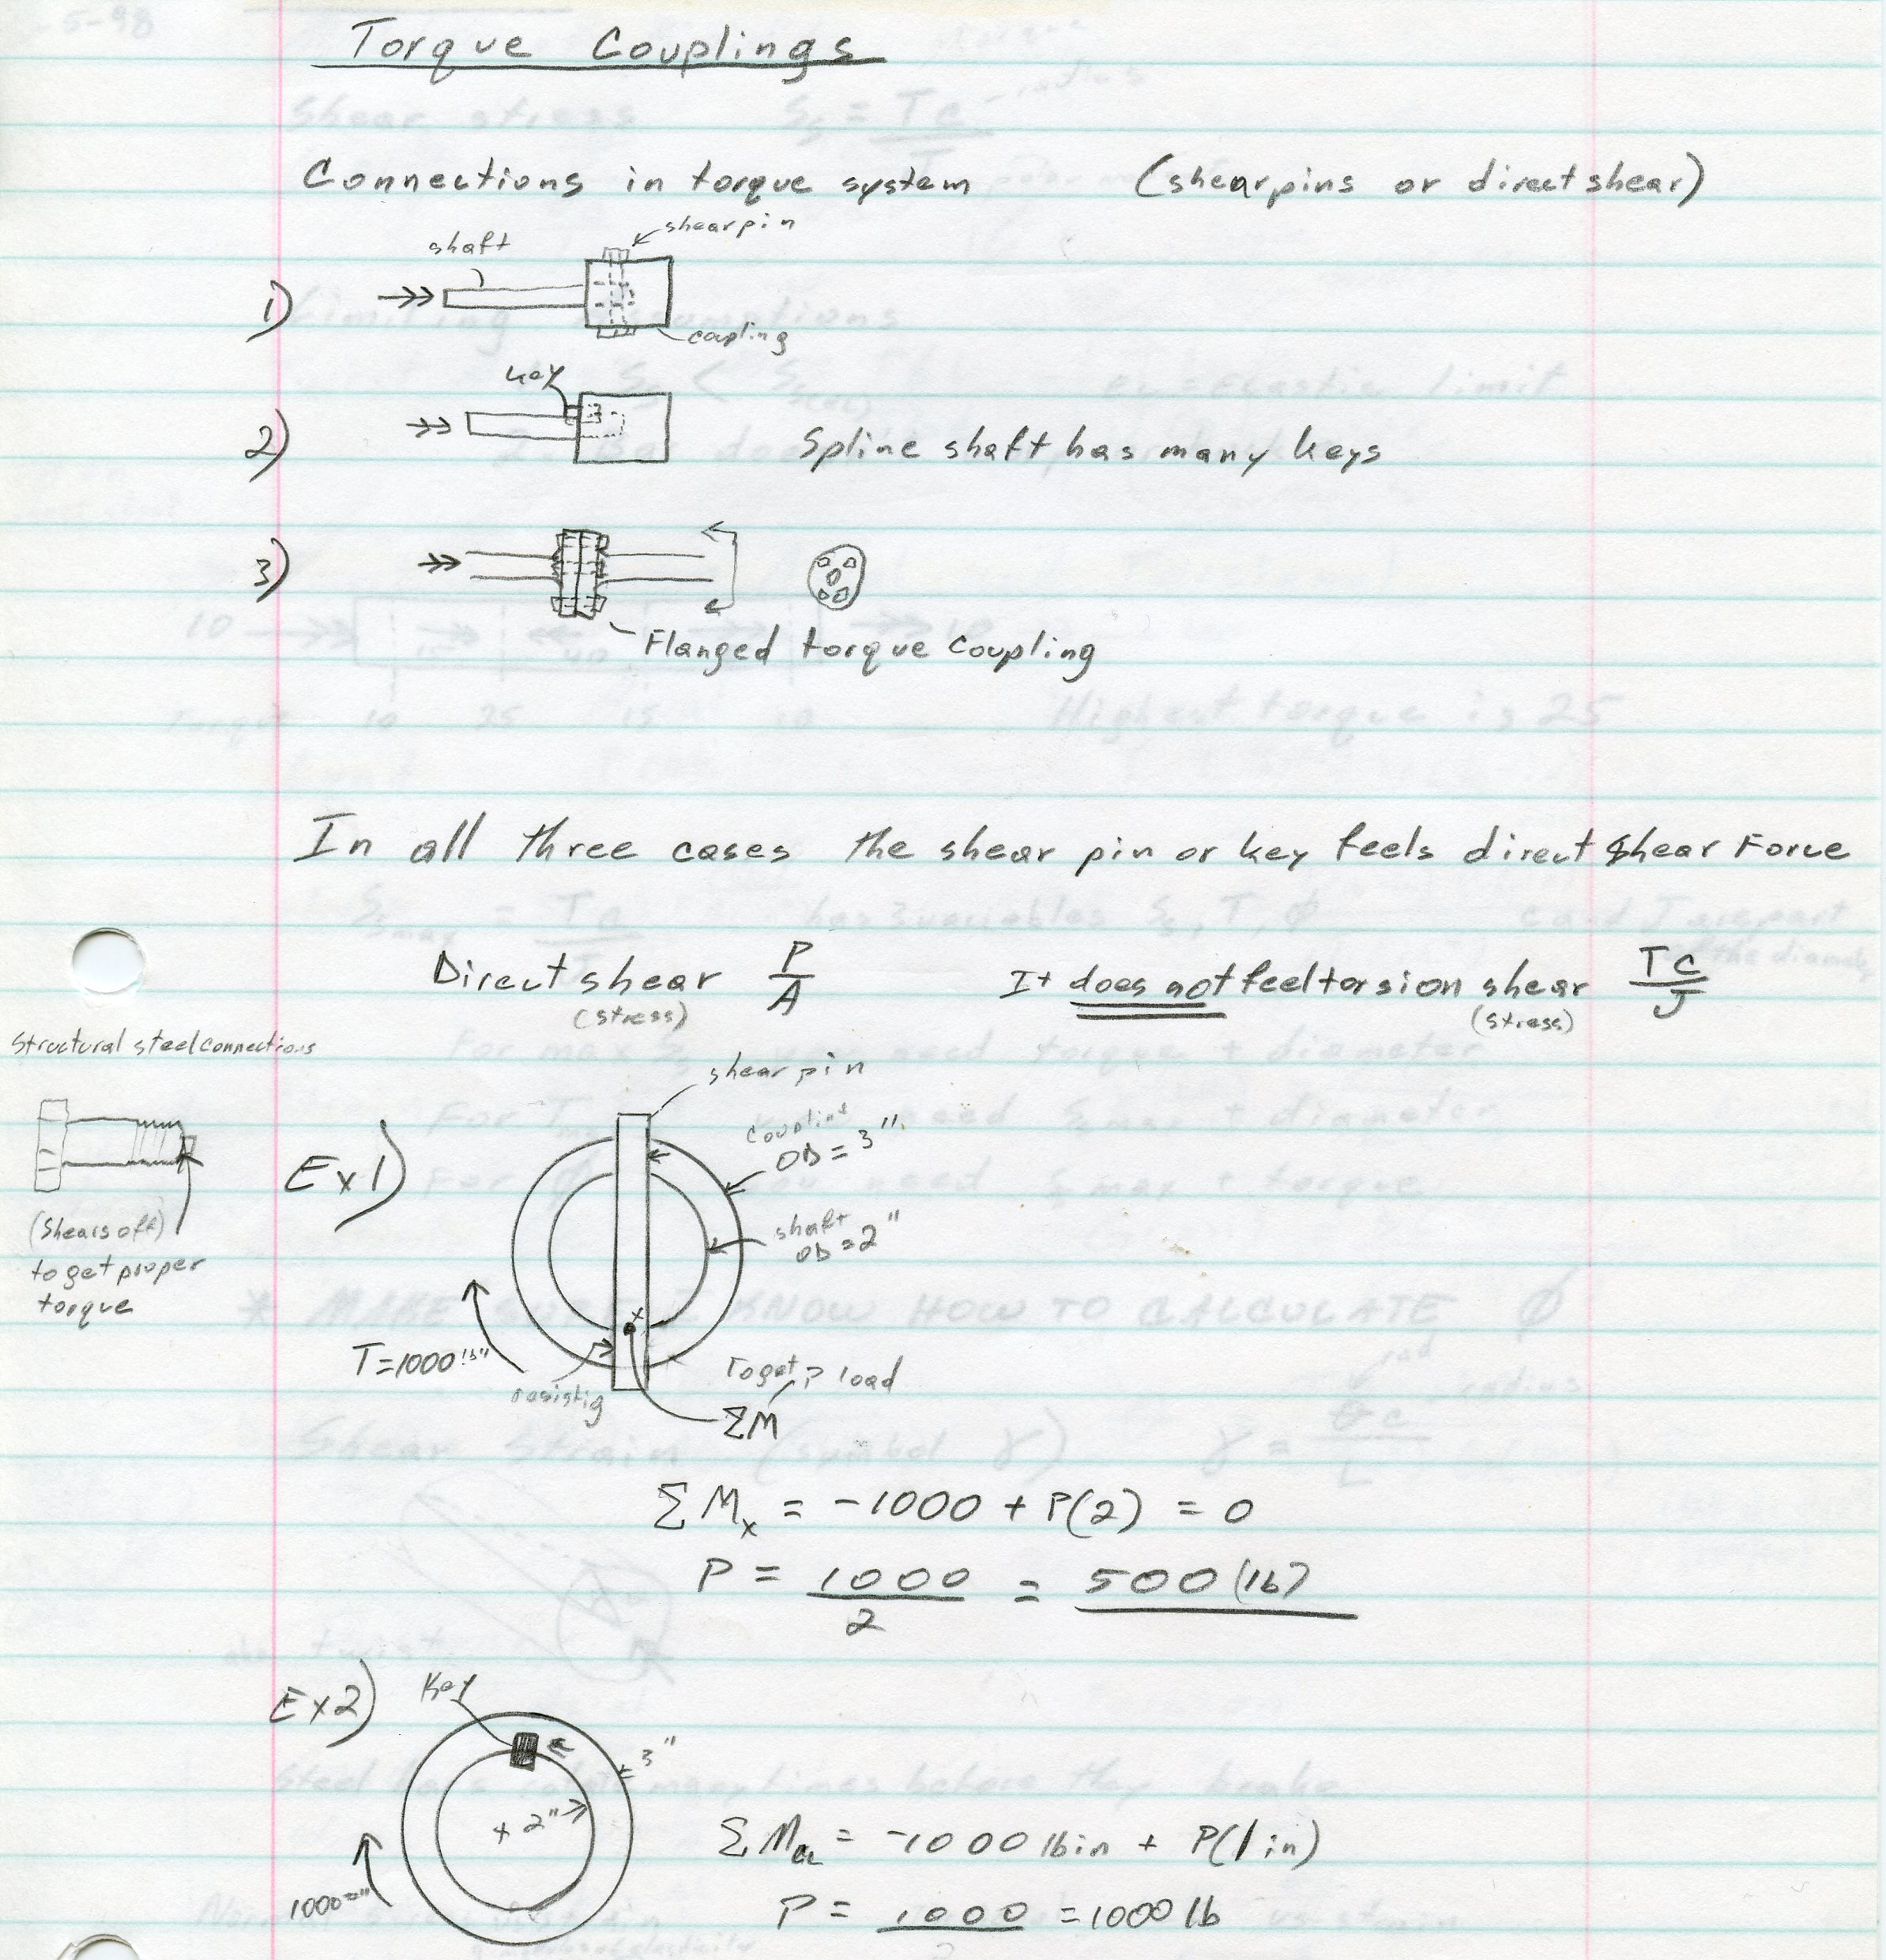 Torque Couplings
Connections in torque system (shearpins or direct shear)
shaft
shearpin
1)
coupling
key
2) Spline shaft has many keys
3)
Flanged torque coupling
In all three cases the shear pin or key feels direct shear Force
Direct shear P/A It does not feel torsion shear TC/J
(stress) (stress)
Structural steel connections
shear pin
Ex1)
coupling
OD = 3"
shaft
OD = 2"
(Shears off)
to get proper
torque
T=1000 lb"
To get P load
ΣM
ΣMx = -1000 + P(2) = 0
P = 1000/2 = 500 (lb)
Ex2) Key
3"
x 2"
1000
ΣM = -1000 lb in + P(1 in)
P = 1000 = 1000 lb